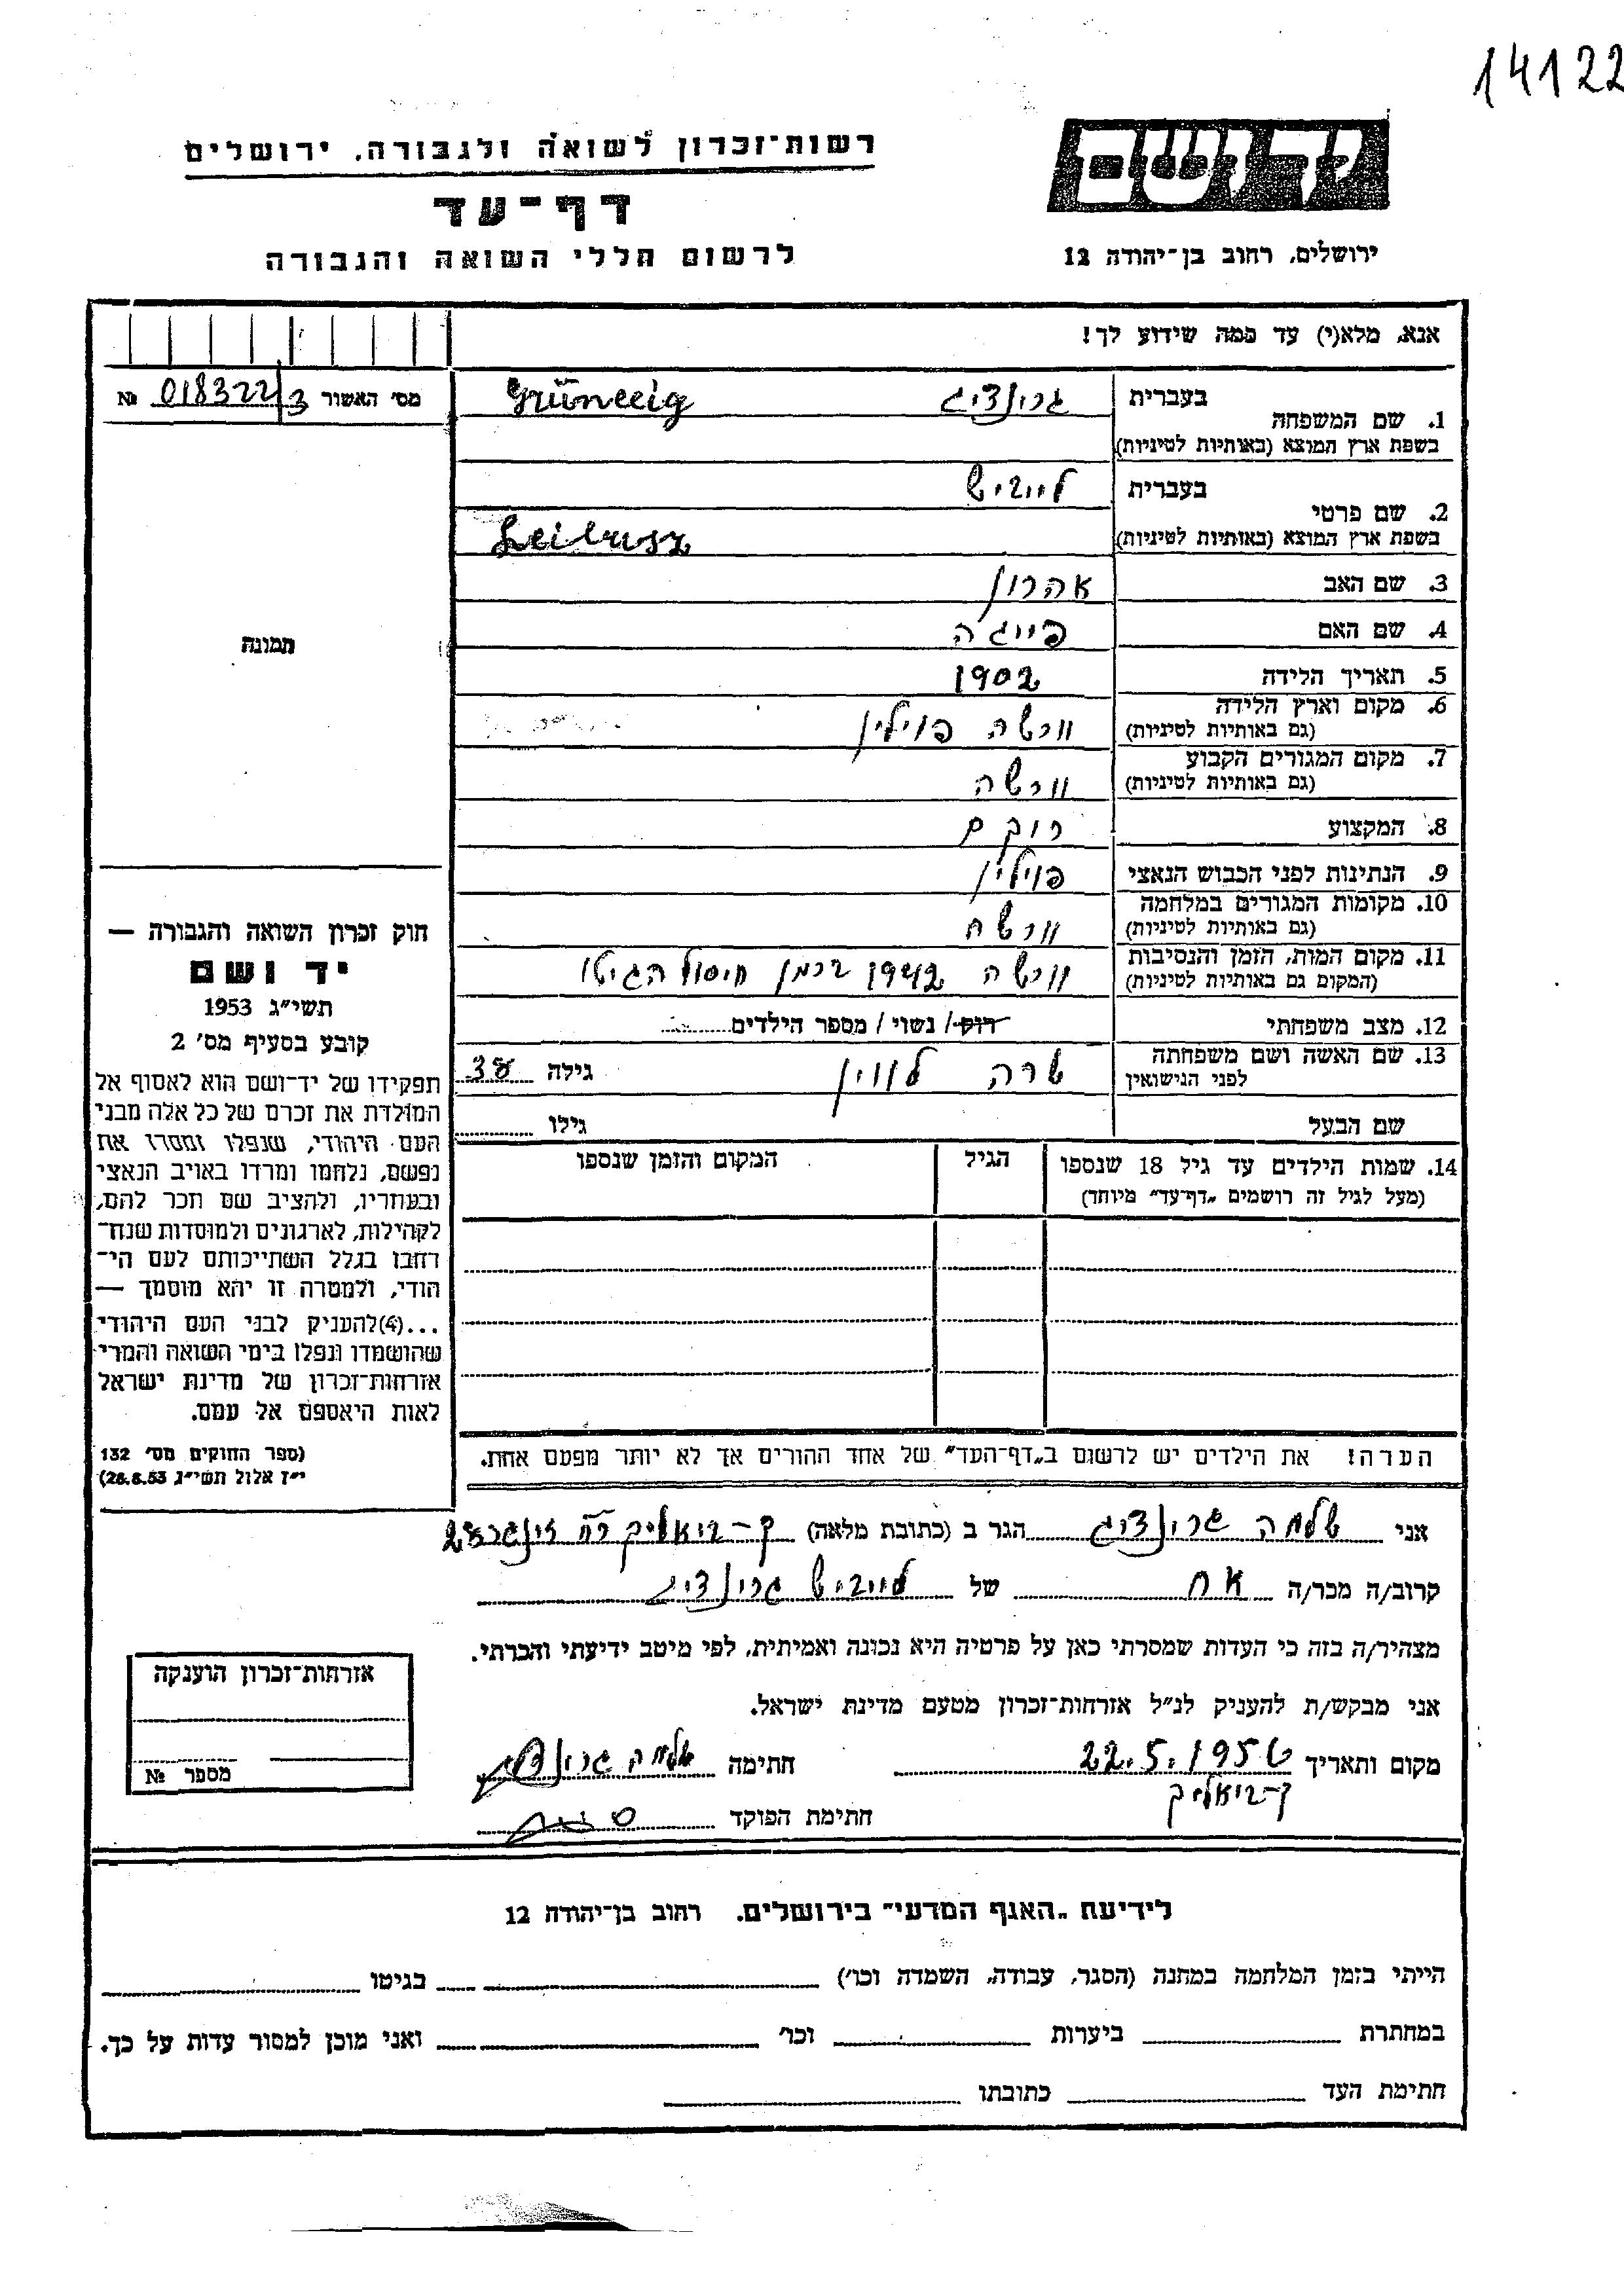 14122
רשות־זכרון לשואה ולגבורה, ירושלים
יד ושם
דף־עד
לרשום חללי השואה והגבורה
ירושלים, רחוב בן־יהודה 12
אנא, מלא(י) עד כמה שידוע לך!
מס' האשור 018322/3 №
1. שם המשפחה
בעברית גרינצייג Grünceig
בשפת ארץ המוצא (באותיות לטיניות)
2. שם פרטי
בעברית לייביש
בשפת ארץ המוצא (באותיות לטיניות) Leibusz
3. שם האב אהרון
4. שם האם פייגה
5. תאריך הלידה 1902
6. מקום וארץ הלידה ורשה פוילין
(גם באותיות לטיניות)
7. מקום המגורים הקבוע ורשה
(גם באותיות לטיניות)
8. המקצוע רוקם
9. הנתינות לפני הכבוש הנאצי פוילין
10. מקומות המגורים במלחמה ורשה
(גם באותיות לטיניות)
11. מקום המות, הזמן והנסיבות ורשה 1942 בזמן חיסול הגיטו
(המקום גם באותיות לטיניות)
12. מצב משפחתי רוק / נשוי / מספר הילדים
13. שם האשה ושם משפחתה שרה לווין גילה 38
לפני הנישואין
שם הבעל גילו
14. שמות הילדים עד גיל 18 שנספו הגיל המקום והזמן שנספו
(מעל לגיל זה רושמים „דף־עד" מיוחד)
הערה! את הילדים יש לרשום ב„דף־העד" של אחד ההורים אך לא יותר מפעם אחת.
תמונה
חוק זכרון השואה והגבורה —
יד ושם
תשי"ג 1953
קובע בסעיף מס' 2
תפקידו של יד־ושם הוא לאסוף אל
המולדת את זכרם של כל אלה מבני
העם היהודי, שנפלו ומסרו את
נפשם, נלחמו ומרדו באויב הנאצי
ובעוזריו, ולהציב שם וזכר להם,
לקהילות, לארגונים ולמוסדות שנח־
רבו בגלל השתייכותם לעם הי־
הודי, ולמטרה זו יהא מוסמך —
...(4)להעניק לבני העם היהודי
שהושמדו ונפלו בימי השואה והמרי
אזרחות־זכרון של מדינת ישראל
לאות היאספם אל עמם.
(ספר החוקים מס' 132
י"ז אלול תשי"ג 28.8.53)
אני שלמה גרינצייג הגר ב (כתובת מלאה) ק-ביאליק
קרוב/ה מכר/ה אח של לייביש גרינצייג
מצהיר/ה בזה כי העדות שמסרתי כאן על פרטיה היא נכונה ואמיתית, לפי מיטב ידיעתי והכרתי.
אני מבקש/ת להעניק לנ"ל אזרחות־זכרון מטעם מדינת ישראל.
מקום ותאריך 22.5.1956 חתימה שלמה גרינצייג
ק-ביאליק
חתימת הפוקד
אזרחות־זכרון הוענקה
מספר №
לידיעת „האגף המדעי" בירושלים, רחוב בן־יהודה 12
הייתי בזמן המלחמה במחנה (הסגר, עבודה, השמדה וכו') בגיטו
במחתרת ביערות וכו' ואני מוכן למסור עדות על כך.
חתימת העד כתובתו